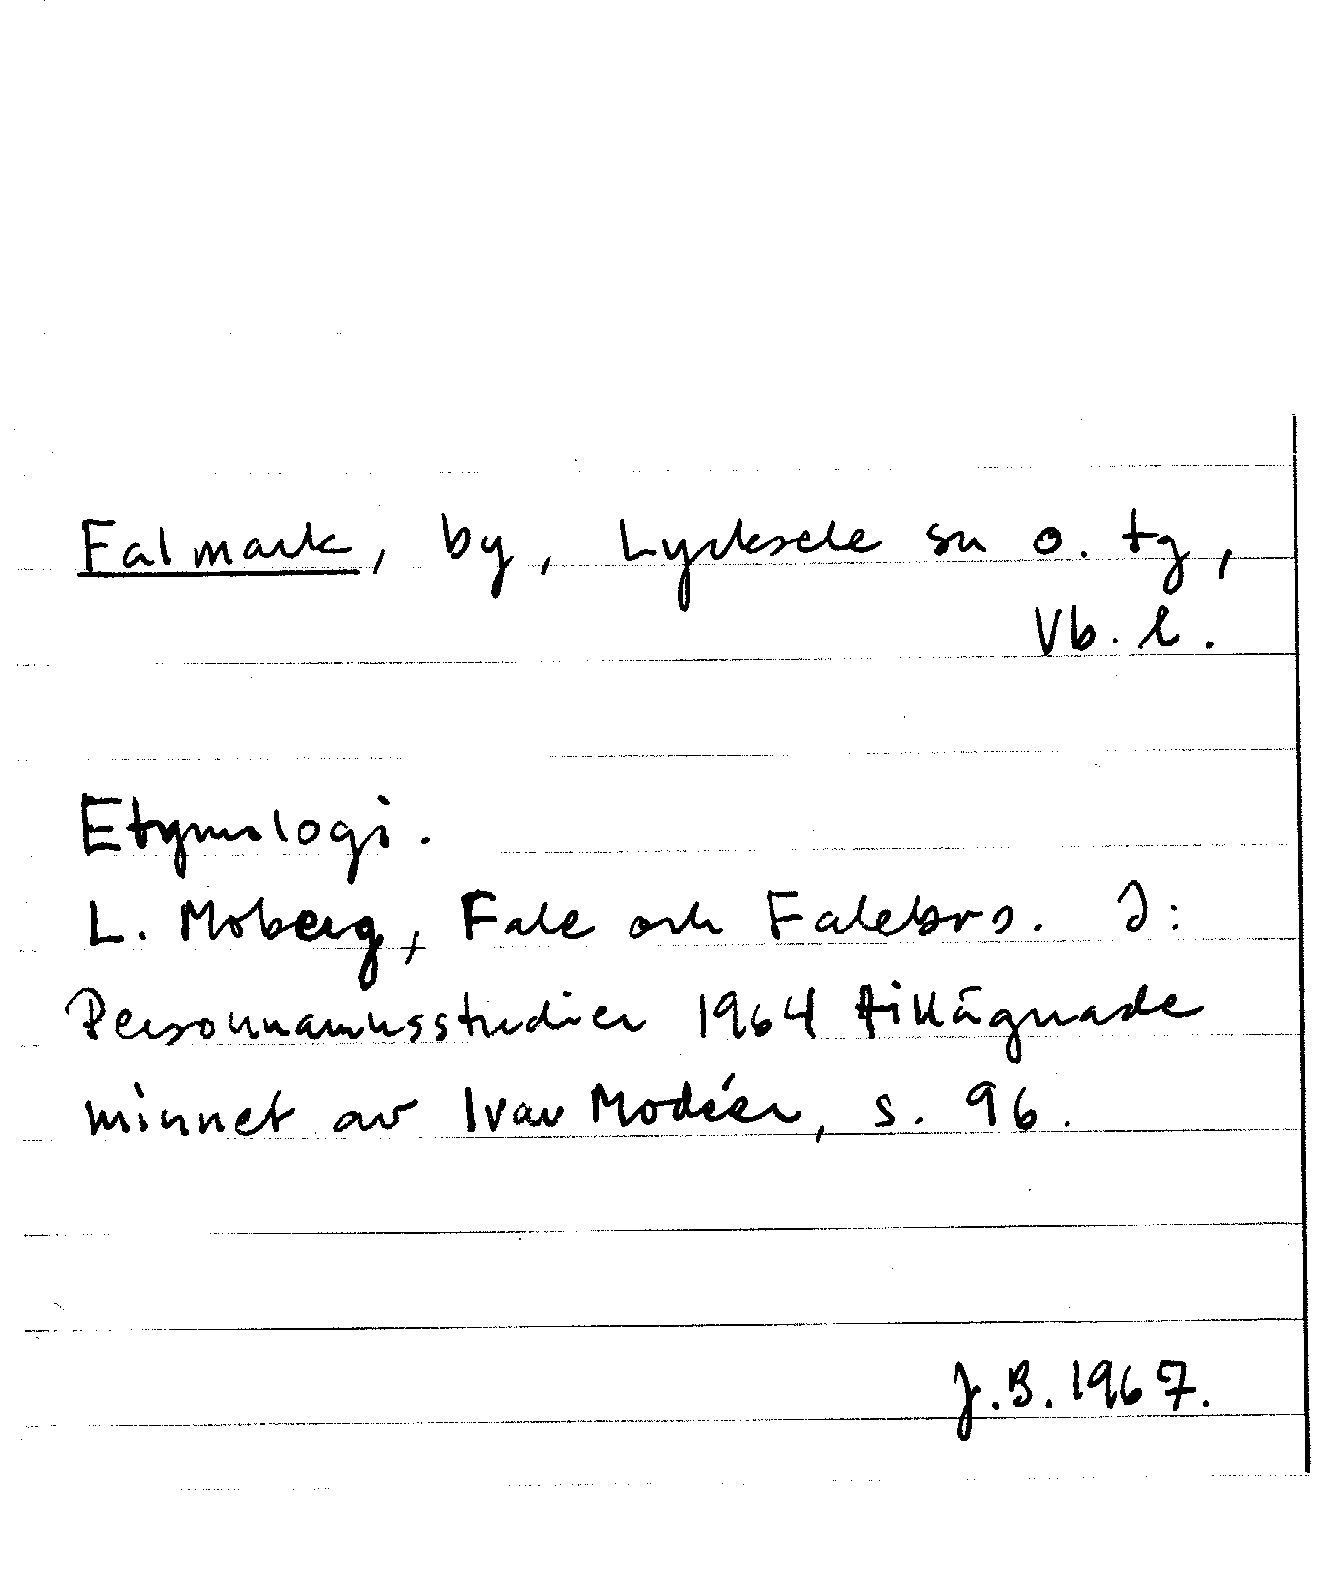 Falmark, by, Lycksele sn o. tg,
Vb. l.
Etymologi.
L. Moberg, Fale och Falebro. I:
Personnamnsstudier 1964 tillägnade
minnet av Ivar Modéer, s. 96.
J.B. 1967.